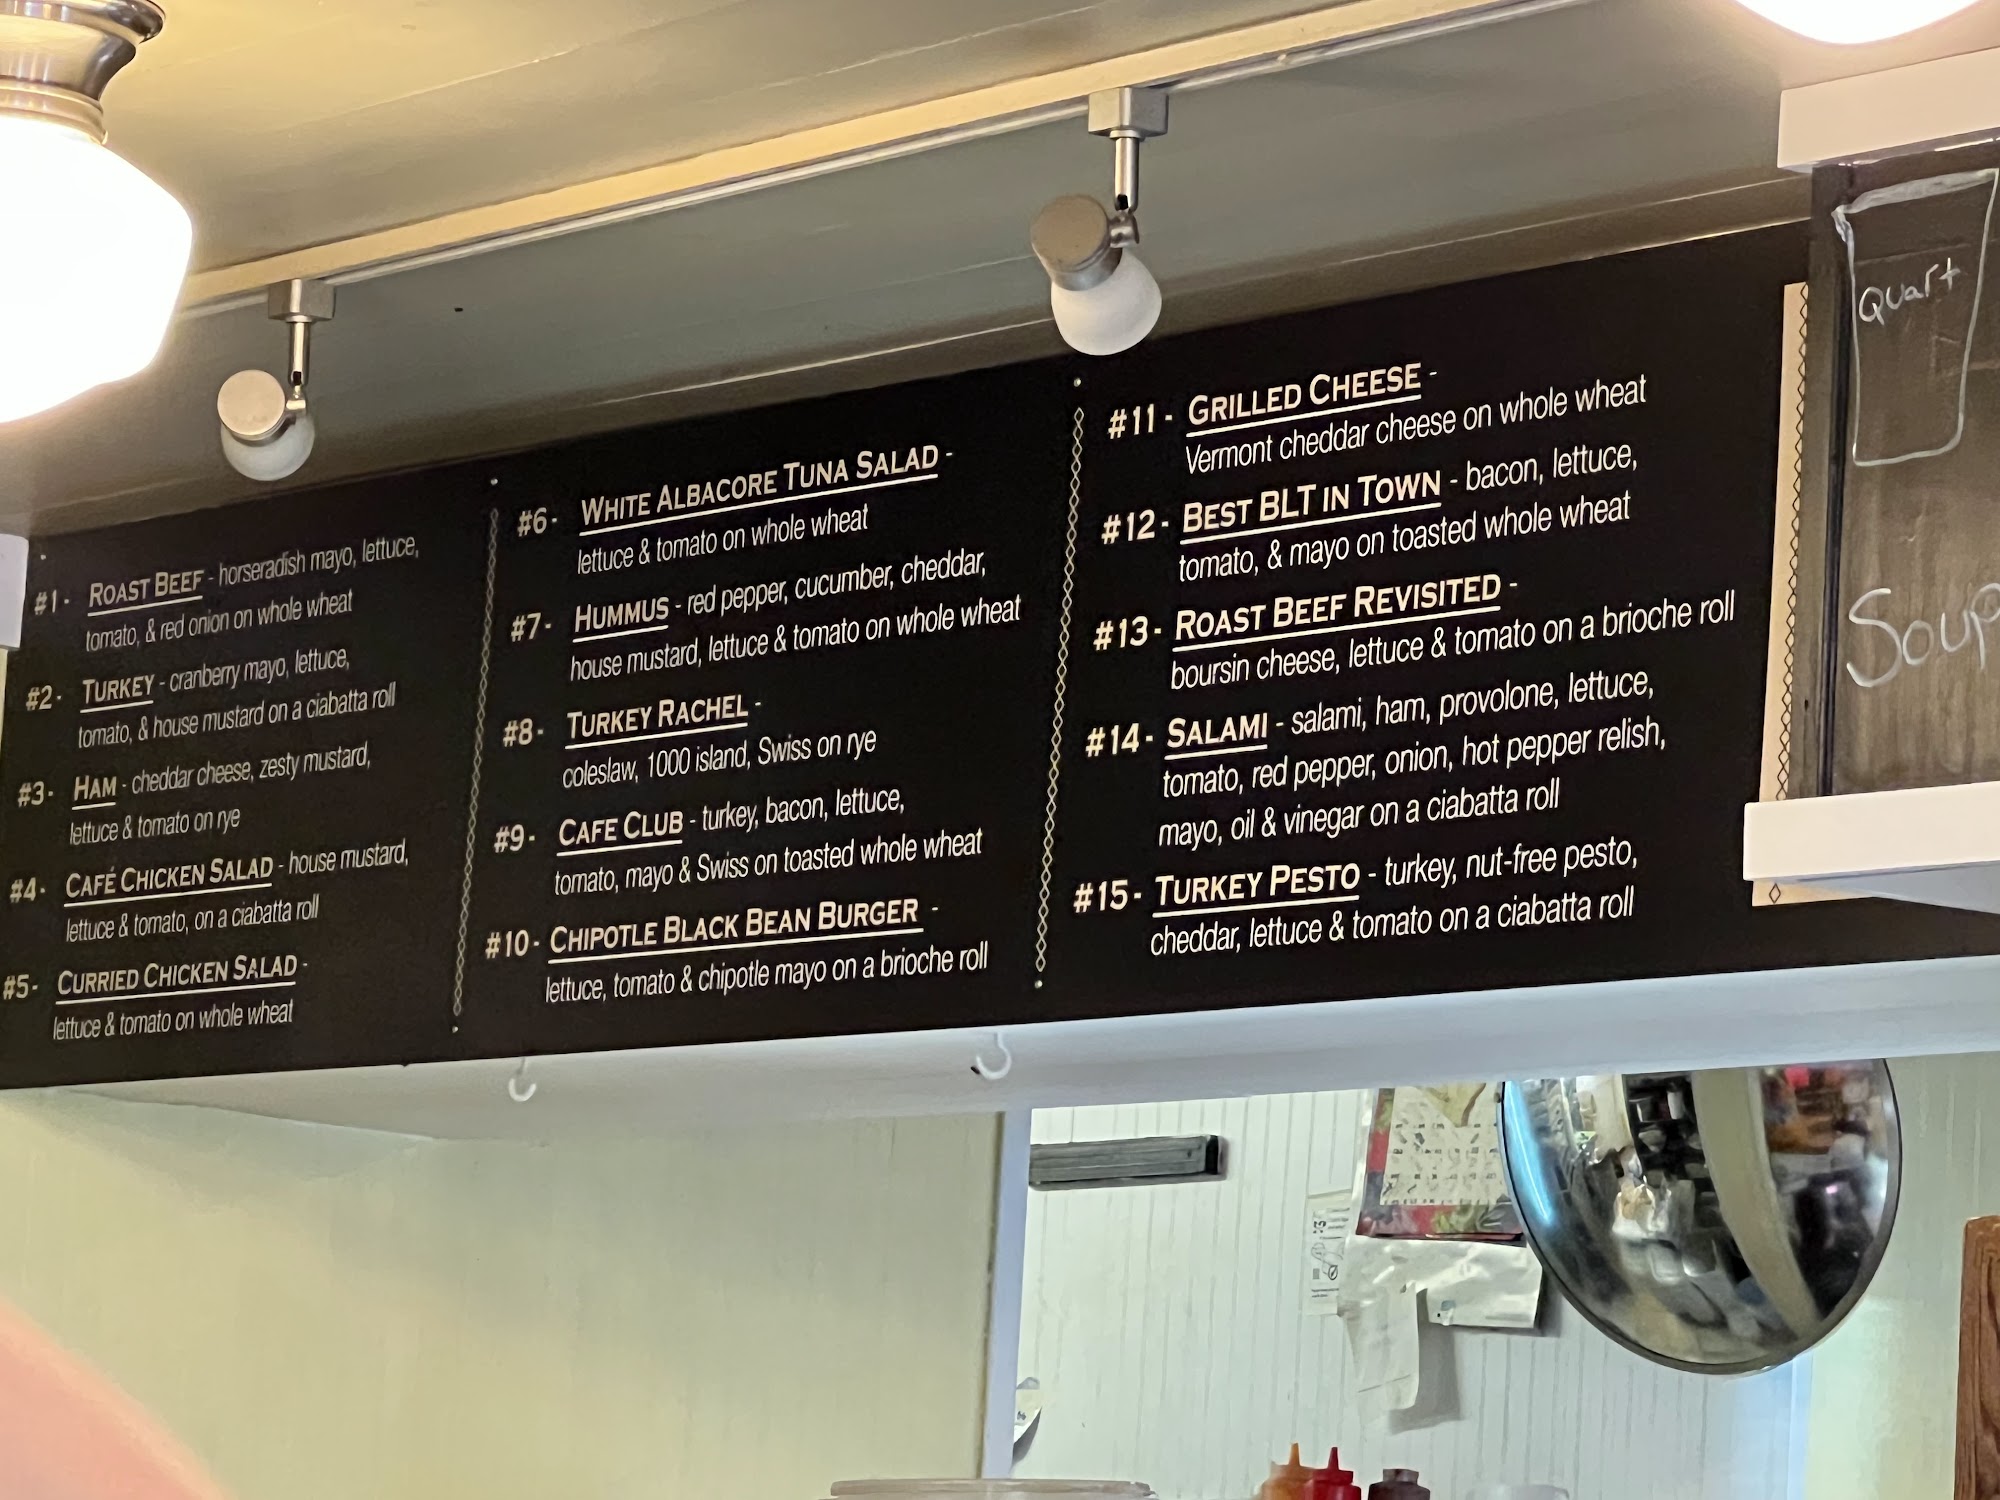 #1- ROAST BEEF - horseradish mayo, lettuce,
tomato, & red onion on whole wheat
#2- TURKEY - cranberry mayo, lettuce,
tomato, & house mustard on a ciabatta roll
#3- HAM - cheddar cheese, zesty mustard,
lettuce & tomato on rye
#4- CAFÉ CHICKEN SALAD - house mustard,
lettuce & tomato, on a ciabatta roll
#5- CURRIED CHICKEN SALAD -
lettuce & tomato on whole wheat
#6- WHITE ALBACORE TUNA SALAD -
lettuce & tomato on whole wheat
#7- HUMMUS - red pepper, cucumber, cheddar,
house mustard, lettuce & tomato on whole wheat
#8- TURKEY RACHEL -
coleslaw, 1000 island, Swiss on rye
#9- CAFE CLUB - turkey, bacon, lettuce,
tomato, mayo & Swiss on toasted whole wheat
#10- CHIPOTLE BLACK BEAN BURGER -
lettuce, tomato & chipotle mayo on a brioche roll
#11- GRILLED CHEESE -
Vermont cheddar cheese on whole wheat
#12- BEST BLT IN TOWN - bacon, lettuce,
tomato, & mayo on toasted whole wheat
#13- ROAST BEEF REVISITED -
boursin cheese, lettuce & tomato on a brioche roll
#14- SALAMI - salami, ham, provolone, lettuce,
tomato, red pepper, onion, hot pepper relish,
mayo, oil & vinegar on a ciabatta roll
#15- TURKEY PESTO - turkey, nut-free pesto,
cheddar, lettuce & tomato on a ciabatta roll
Quart
Soup